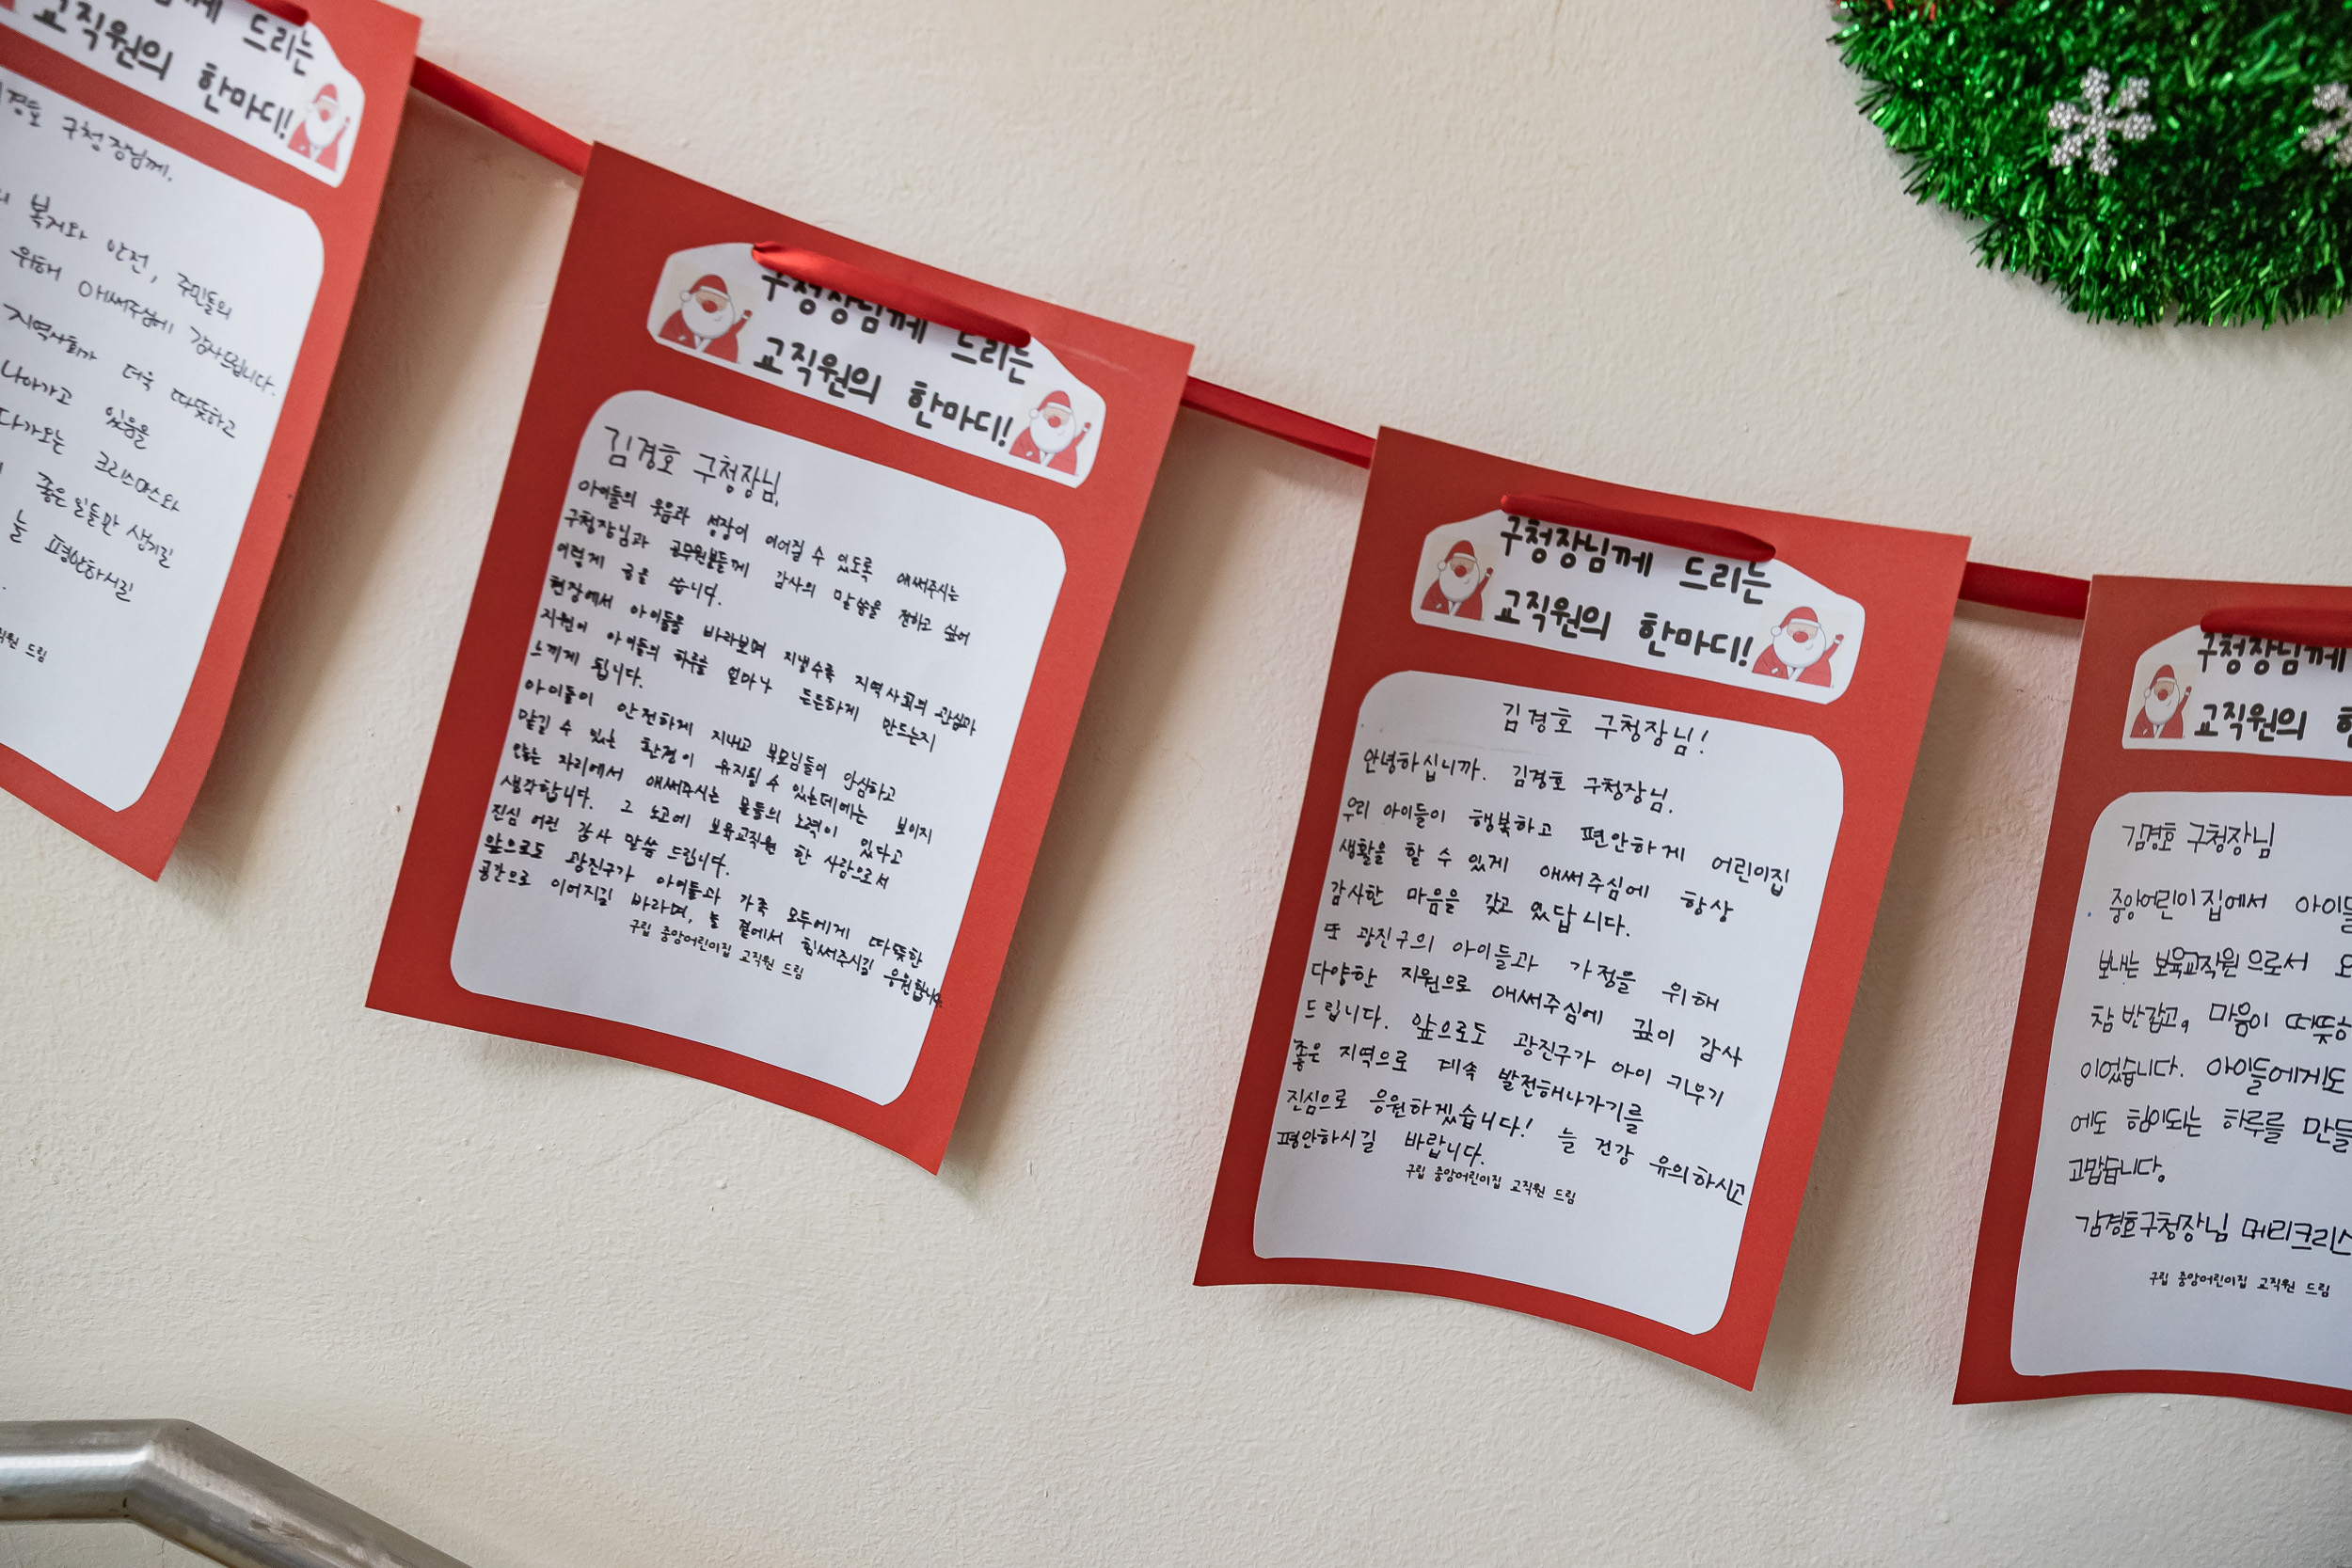 드리는
교직원의 한마디!
구청장님께.
복지와 안전, 주민들의
위해 애써주심에 감사드립니다.
지역사회가 더욱 따뜻하고
나아가고 있음을
다가오는 크리스마스와
좋은 일들만 생기길
늘 평안하시길
드림
구청장님께 드리는
교직원의 한마디!
김경호 구청장님,
아이들의 웃음과 성장이 이어질 수 있도록 애써주시는
구청장님과 공무원분들께 감사의 말씀을 전하고 싶어
이렇게 글을 씁니다.
현장에서 아이들을 바라보며 지낼수록 지역사회의 관심과
지원이 아이들의 하루를 얼마나 든든하게 만드는지
느끼게 됩니다.
아이들이 안전하게 지내고 부모님들이 안심하고
맡길 수 있는 환경이 유지될 수 있는데에는 보이지
않는 자리에서 애써주시는 분들의 노력이 있다고
생각합니다. 그 노고에 보육교직원 한 사람으로서
진심 어린 감사 말씀 드립니다.
앞으로도 광진구가 아이들과 가족 모두에게 따뜻한
공간으로 이어지길 바라며, 늘 곁에서 힘써주시길 응원합니다.
구립 중앙어린이집 교직원 드림
구청장님께 드리는
교직원의 한마디!
김경호 구청장님!
안녕하십니까. 김경호 구청장님.
우리 아이들이 행복하고 편안하게 어린이집
생활을 할 수 있게 애써주심에 항상
감사한 마음을 갖고 있답니다.
또 광진구의 아이들과 가정을 위해
다양한 지원으로 애써주심에 깊이 감사
드립니다. 앞으로도 광진구가 아이 키우기
좋은 지역으로 계속 발전해나가기를
진심으로 응원하겠습니다! 늘 건강 유의하시고
평안하시길 바랍니다.
구립 중앙어린이집 교직원 드림
구청장님께
교직원의
김경호 구청장님
중앙어린이집에서
보내는 보육교직원으로서
참 반갑고, 마음이
이었습니다. 아이들에게도
에도 힘이되는 하루를
고맙습니다.
김경호구청장님
구립 중앙어린이집 교직원 드림